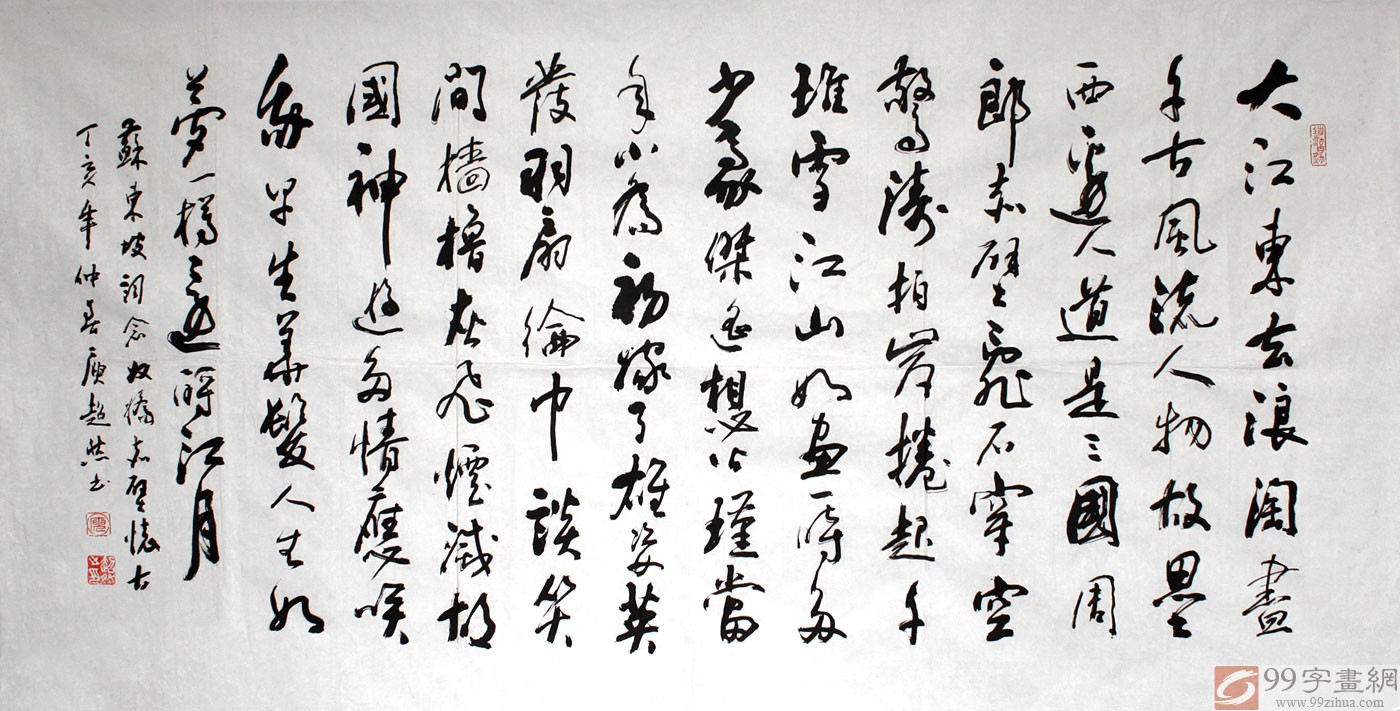 大江東去浪淘盡
千古風流人物故壘
西邊人道是三國周
郎赤壁亂石穿空
驚濤拍岸捲起千
堆雪江山如畫一時多
少豪傑遙想公瑾當
年小喬初嫁了雄姿英
發羽扇綸巾談笑
間檣櫓灰飛煙滅故
國神遊多情應咲
我早生華髮人生如
夢一樽還酹江月
蘇東坡詞念奴嬌赤壁懷古
丁亥年仲春超然書
99字畫網
www.99zihua.com